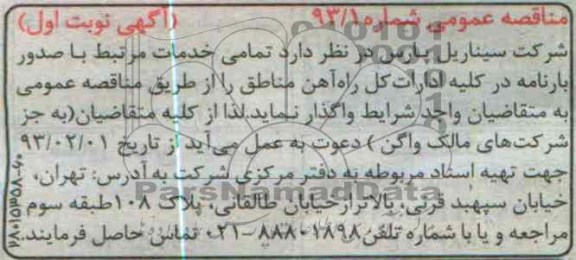 مناقصه عمومی شماره ۹۳/۱ (آگهی نوبت اول)
شرکت سیناریل پارس در نظر دارد تمامی خدمات مرتبط با صدور
بارنامه در کلیه ادارات کل راه‌آهن مناطق را از طریق مناقصه عمومی
به متقاضیان واجد شرایط واگذار نماید. لذا از کلیه متقاضیان (به جز
شرکت‌های مالک واگن) دعوت به عمل می‌آید از تاریخ ۹۳/۰۲/۰۱
جهت تهیه اسناد مربوطه به دفتر مرکزی شرکت به آدرس: تهران،
خیابان سپهبد قرنی، بالاتر از خیابان طالقانی، پلاک ۱۰۸ طبقه سوم
مراجعه و یا با شماره تلفن ۸۸۸۰۱۸۹۸-۰۲۱ تماس حاصل فرمایند.
ParsNamadData